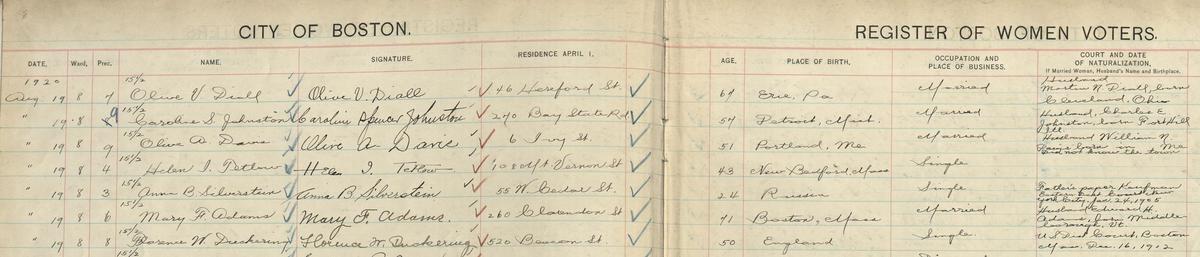 CITY OF BOSTON. REGISTER OF WOMEN VOTERS.
DATE, Ward, Prec. NAME. SIGNATURE. RESIDENCE APRIL 1, AGE, PLACE OF BIRTH, OCCUPATION AND PLACE OF BUSINESS. COURT AND DATE OF NATURALIZATION, If Married Woman, Husband's Name and Birthplace.
1920
Aug 19 8 7 15 1/2 Olive V Diall Olive V. Diall 46 Hereford St. 67 Erie, Pa Married Husband Martin N. Diall, born Cleveland, Ohio
" 19 8 9 15 1/2 Caroline S. Johnston Caroline Spencer Johnston 270 Bay State Rd 57 Detroit, Mich. Married Husband, Charles E Johnston, born Fort Hill Ill.
" 19 8 9 15 1/2 Olive A Davis Olive A Davis 6 Ivy St. 51 Portland, Me Married Husband William N. Davis born in Me Did not know the town
" 19 8 4 15 1/2 Helen I. Tetlow Helen I. Tetlow Mt. Vernon St 43 New Bedford, Mass Single
" 19 8 3 15 1/2 Anna B. Silverstein Anna B. Silverstein 55 W. Cedar St. 24 Russia Single Father's paper Kaufman Eastern Dist Court New York City, Jan. 24, 1905
" 19 8 6 15 1/2 Mary F. Adams Mary F. Adams. 260 Clarendon St 71 Boston, Mass Married Husband Edward H. Adams, born Middle Vt.
" 19 8 8 15 1/2 Florence W. Duckering Florence W. Duckering 520 Beacon St. 50 England Single. U S Dist Court, Boston Mass. Dec. 16, 1912
15 1/2